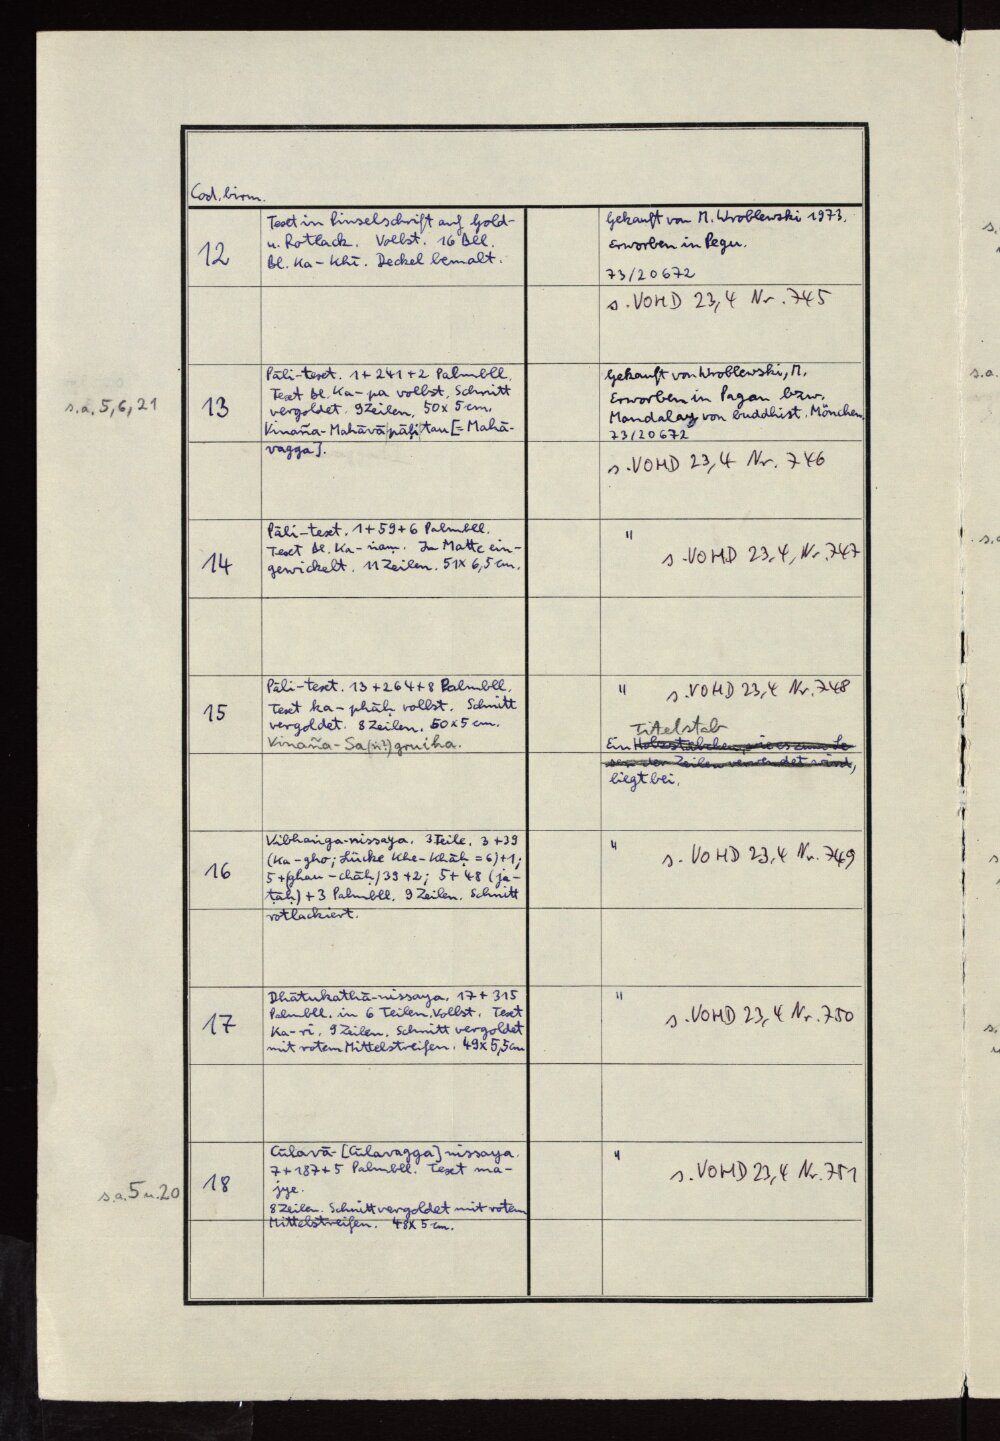 Cod. birm.
12
Text in Pinselschrift auf Gold-
u. Rotlack. Vollst. 16 Bll.
Bl. Ka - Khī. Deckel bemalt.
Gekauft von M. Wroblewski 1973.
Erworben in Pegu.
73/20672
s. VOHD 23,4 Nr. 745
s.a. 5, 6, 21
13
Pāli-text. 1+241+2 Palmbll.
Text Bl. Ka-pa vollst. Schnitt
vergoldet. 9 Zeilen, 50 x 5 cm.
Vinaña-Mahāvā pāḷi tau [= Mahā-
vagga].
Gekauft von Wroblewski, M.
Erworben in Pagan bzw.
Mandalay von buddhist. Mönchen.
73/20672
s. VOHD 23,4 Nr. 746
14
Pāli-text. 1+59+6 Palmbll.
Text Bl. Ka-ṅaṃ. In Matte ein-
gewickelt. 11 Zeilen. 51 x 6,5 cm.
"
s. VOHD 23,4, Nr. 747
15
Pāli-text. 13+264+8 Palmbll.
Text ka-phāḥ vollst. Schnitt
vergoldet. 8 Zeilen. 50 x 5 cm.
Vinaña-Sa(ṅ?)gruiha.
" s. VOHD 23,4 Nr. 748
Titelstab
Ein Holzstäbchen, wie es zum Le-
sen der Zeilen verwendet wird,
liegt bei.
16
Vibhaṅga-nissaya. 3 Teile. 3+39
(Ka-gho; Lücke Khe-Khāḥ = 6)+1;
5+(ghau-chāḥ) 39+2; 5+48 (ja-
ṭāḥ)+3 Palmbll. 9 Zeilen. Schnitt
rotlackiert.
"
s. VOHD 23,4 Nr. 749
17
Dhātukathā-nissaya. 17+315
Palmbll. in 6 Teilen. Vollst. Text
Ka-ri. 9 Zeilen. Schnitt vergoldet
mit rotem Mittelstreifen. 49 x 5,5 cm
"
s. VOHD 23,4 Nr. 750
s.a. 5 u. 20
18
Cūlavā- [Cūlavagga] nissaya.
7+187+5 Palmbll. Text ma-
jye.
8 Zeilen. Schnitt vergoldet mit rotem
Mittelstreifen. 48 x 5 cm.
"
s. VOHD 23,4 Nr. 751